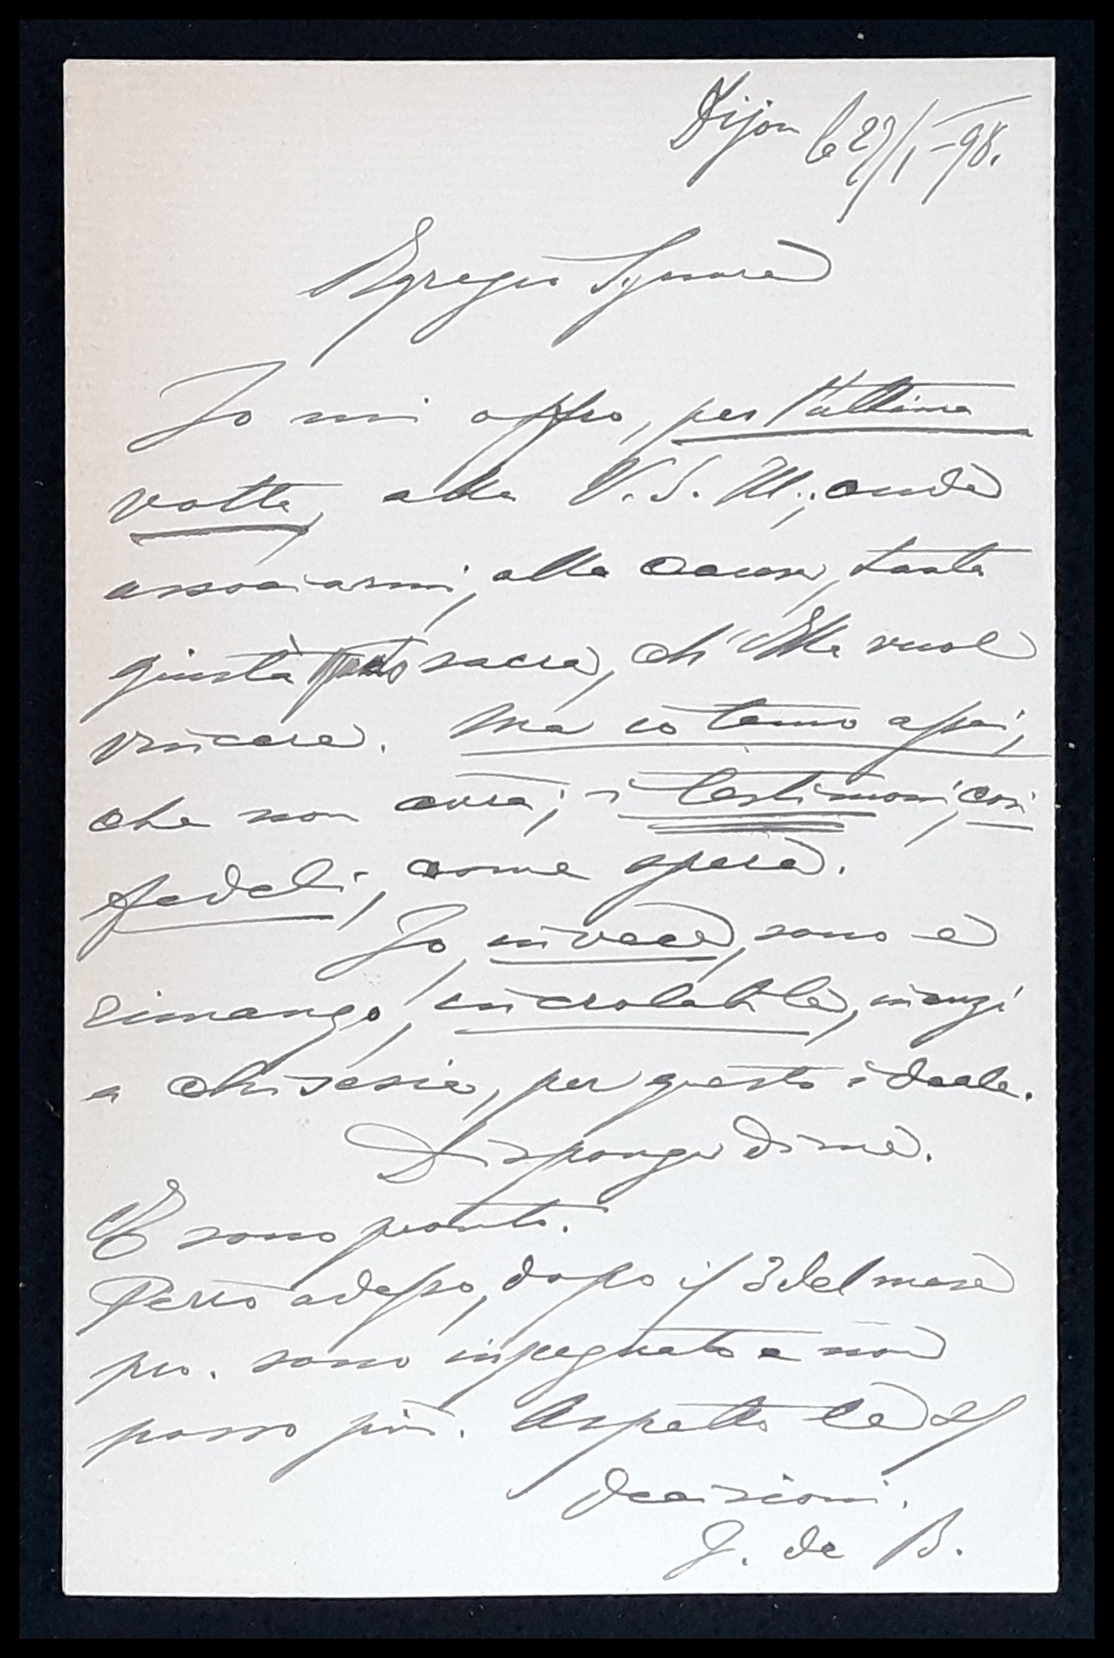 Dijon le 27/1-98.
Egregio Signore
Io mi offro, per l'ultima
volta, alla V. S. Ill.; onde
associarmi, alla causa, tanto
giusta sacra, ch'Ella vuol
vincere. Ma io temo assai,
che non avrà, i testimoni, così
fedeli, come spera.
Io, invece, sono e
rimango, incrolabile, inanzi
a chisesia, per questo ideale.
Disponga di me.
E sono pronto.
Però adesso, dopo il 3 del mese
pro. sono inpegnato e non
posso più. Aspetto le
decisioni.
J. de B.